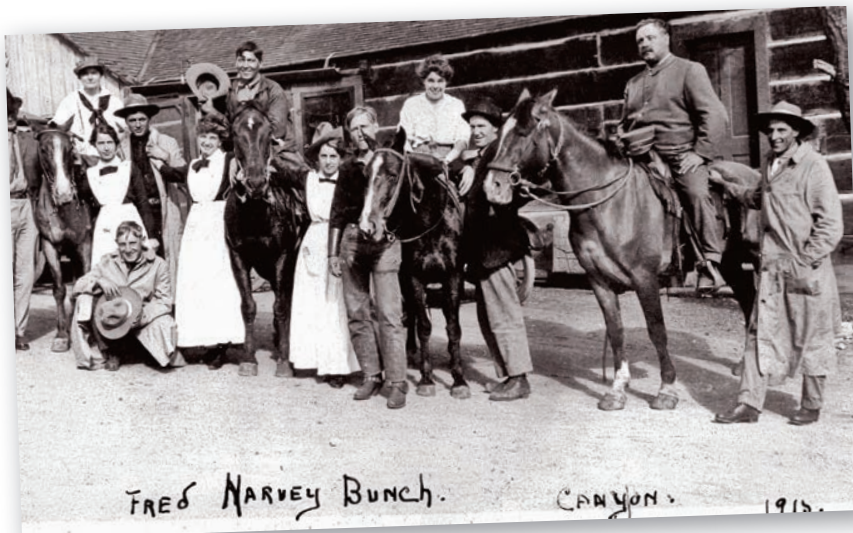 FRED HARVEY BUNCH. CANYON.